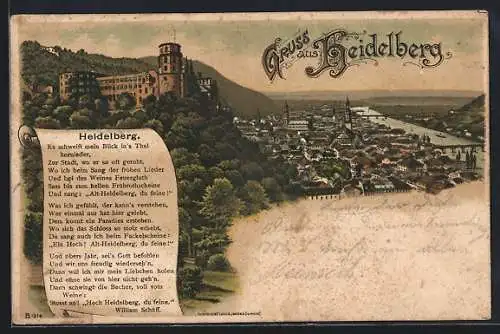 Gruss
aus Heidelberg.
Heidelberg.
Es schweift mein Blick in's Thal
hernieder,
Zur Stadt, wo er so oft geruht,
Wo ich beim Sang der frohen Lieder
Und bei des Weines Feuergluth
Sass bis zum hellen Frührothscheine
Und sang: „Alt-Heidelberg, du feine!"
Was ich gefühlt, der kann's verstehen,
Wer einmal aus hat hier gelebt,
Dem konnt ein Paradies erstehen.
Wo sich das Schloss so stolz erhebt,
Da sang auch ich beim Fackelscheine:
„Ein Hoch! Alt-Heidelberg, du feine!"
Und übers Jahr, sei's Gott befohlen
Und wir uns freudig wiederseh'n,
Dann will ich mir mein Liebchen holen
Und ohne sie von hier nicht geh'n.
Dann schwingt die Becher, voll vom
Weine:
Stosst an! „Hoch Heidelberg, du feine."
William Schäff.